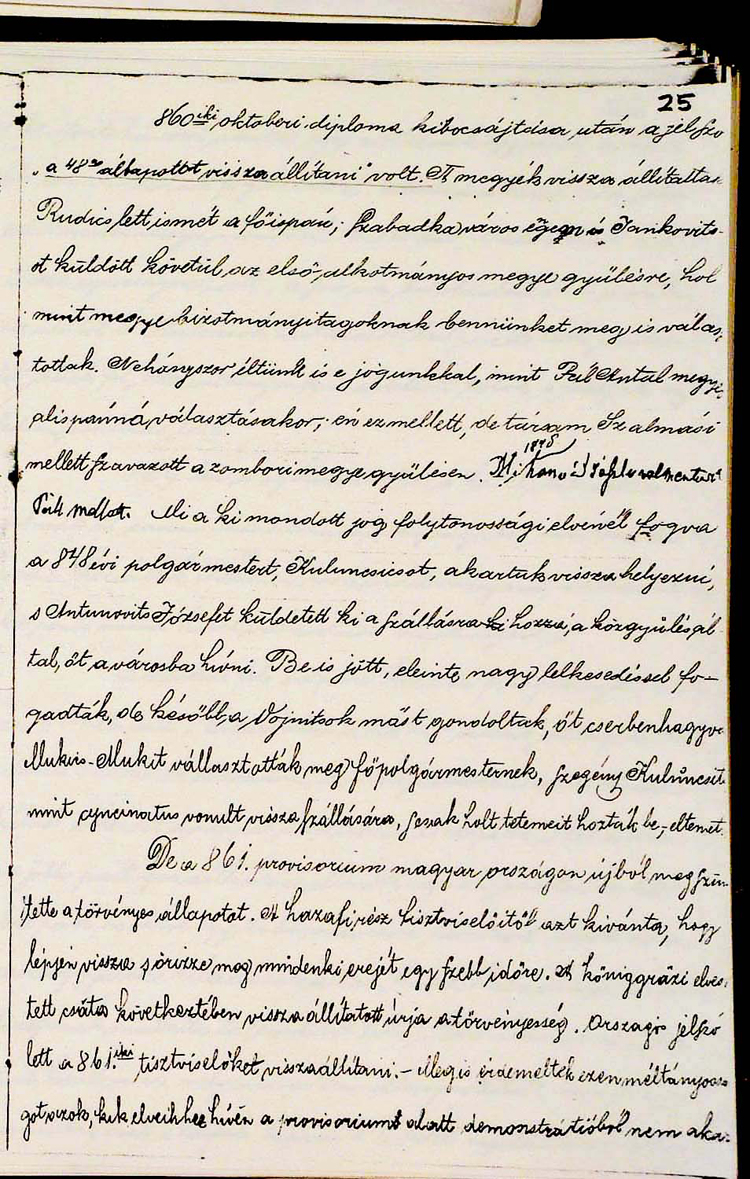 25
860iki oktoberi diploma kibocsájtása után a jelszo
„a 48as állapottot vissza állítani" volt. A megyék vissza állíttattak
Rudics lett ismét a főispán; Szabadka város engem és Jankovits-
ot küldött követül az első alkotmányos megye gyülésre, hol
mint megye bizotmányi tagoknak bennünket meg is válasz
tottak. Nehányszor éltünk is e jogunkkal, mint Pál Antal megyei
alispánná választásakor; én ez mellett, de társam Szalmási
mellett szavazott a zombori megye gyülésen. 1848
Pál mellett. Mi a ki mondott jog folytonossági elvénél fogva
a 848 évi polgármestert, Kuluncsicsot, akartuk vissza helyezni,
s Antunovits Józsefet küldetett ki a szállásra hozzá, a közgyülés ál
tal, őt a városba hívni. Be is jött, eleinte nagy lelkesedéssel fo-
gadták, de később a Vojnitsok mást gondoltak, őt cserbenhagyva
Mukis-Mukit vállasztották meg főpolgármesternek, szegény Kuluncsits
mint cyncinatus vonult vissza szállására, s csak holt tetemeit hozták be, eltemet.
De a 861. provisorium magyar országon újból megszün
tette a törvényes állapotot. A hazafi rész tisztviselőitől azt kivánta, hogy
lépjen vissza s őrizze meg mindenki erejét egy szebb időre. A königgrázi elvesz
tett csata következtében vissza állítatott úrja a törvényesség. Országos jelszó
lett a 861.iki tisztviselőket visszaállítani. – Meg is érdemelték ezen méltányossá
got azok, kik elveihhez hívén a provisorium alatt demonstrátióból nem aka-